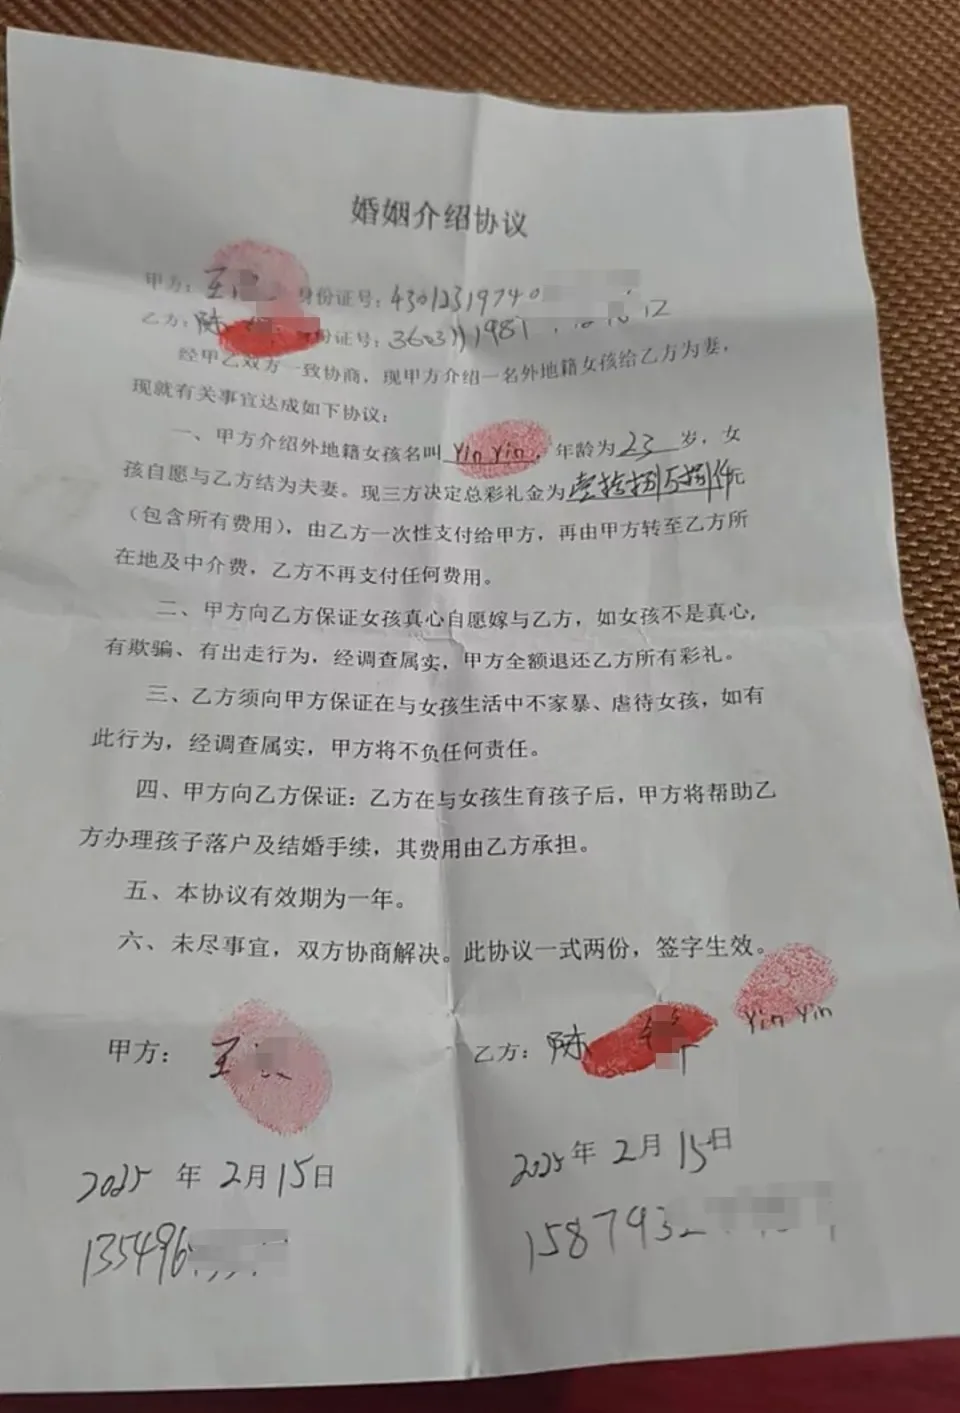 婚姻介绍协议
甲方:王 身份证号:43012319740
乙方:陈 身份证号:3603111981
经甲乙双方一致协商，现甲方介绍一名外地籍女孩给乙方为妻，
现就有关事宜达成如下协议:
一、甲方介绍外地籍女孩名叫 Yin Yin，年龄为 23 岁，女
孩自愿与乙方结为夫妻。现三方决定总彩礼金为壹拾捌万捌仟元
（包含所有费用），由乙方一次性支付给甲方，再由甲方转至乙方所
在地及中介费，乙方不再支付任何费用。
二、甲方向乙方保证女孩真心自愿嫁与乙方，如女孩不是真心,
有欺骗、有出走行为，经调查属实，甲方全额退还乙方所有彩礼。
三、乙方须向甲方保证在与女孩生活中不家暴、虐待女孩，如有
此行为，经调查属实，甲方将不负任何责任。
四、甲方向乙方保证：乙方在与女孩生育孩子后，甲方将帮助乙
方办理孩子落户及结婚手续，其费用由乙方承担。
五、本协议有效期为一年。
六、未尽事宜，双方协商解决。此协议一式两份，签字生效。
甲方： 王 乙方： 陈 Yin Yin
2025 年 2月 15日 2025 年 2月 15日
135496 1587932